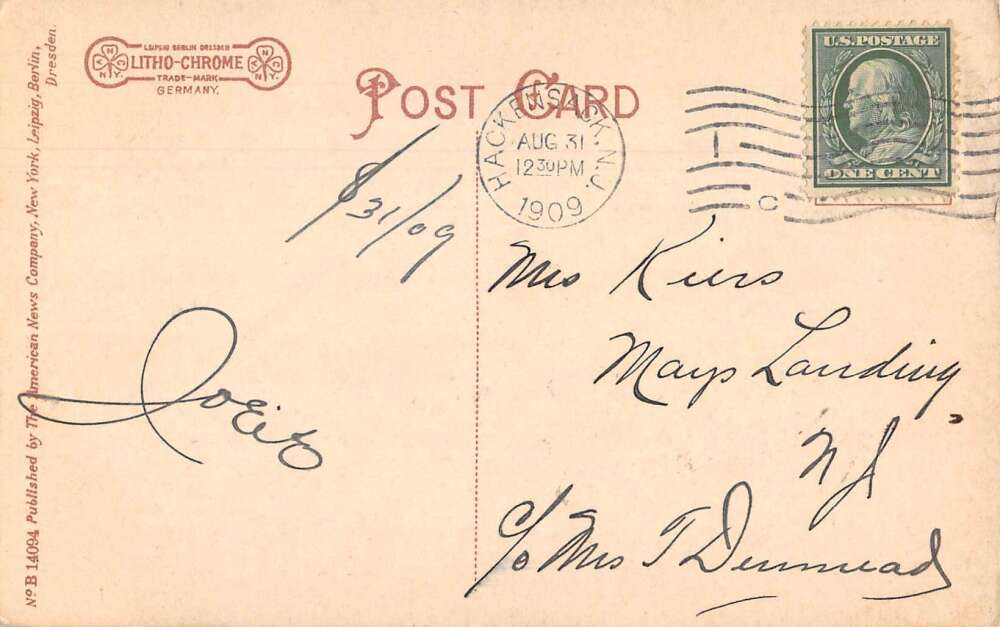 LEIPZIG BERLIN DRESDEN
LITHO-CHROME
TRADE-MARK
GERMANY.
N.Y.
POST CARD
HACKENSACK. N.J.
AUG 31
12 30 PM
1909
U.S. POSTAGE
ONE CENT
C
8/31/09
Mrs Kiers
Mays Landing
N J
c/o Mrs T Denmead
No B 14094 Published by The American News Company, New York, Leipzig, Berlin,
Dresden.